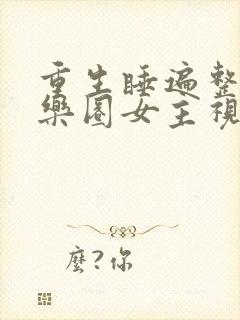 重生睡遍整
樂圈女主視
麼?你